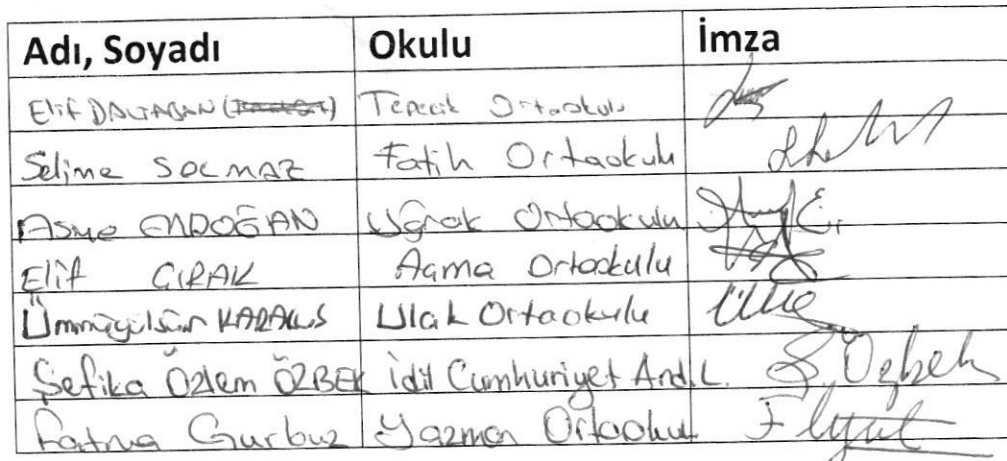 Adı, Soyadı Okulu İmza
Elif DALTABAN Tepecik Ortaokulu
Selime SOLMAZ Fatih Ortaokulu
Asme ERDOĞAN Uğrak Ortaokulu
Elif ÇIRAK Açma Ortaokulu
Ümmügülsün KARAKUŞ Ulak Ortaokulu
Şefika Özlem ÖZBEK İdil Cumhuriyet And.L. Ş. Özbek
Fatma Gürbuz Yazman Ortaokul